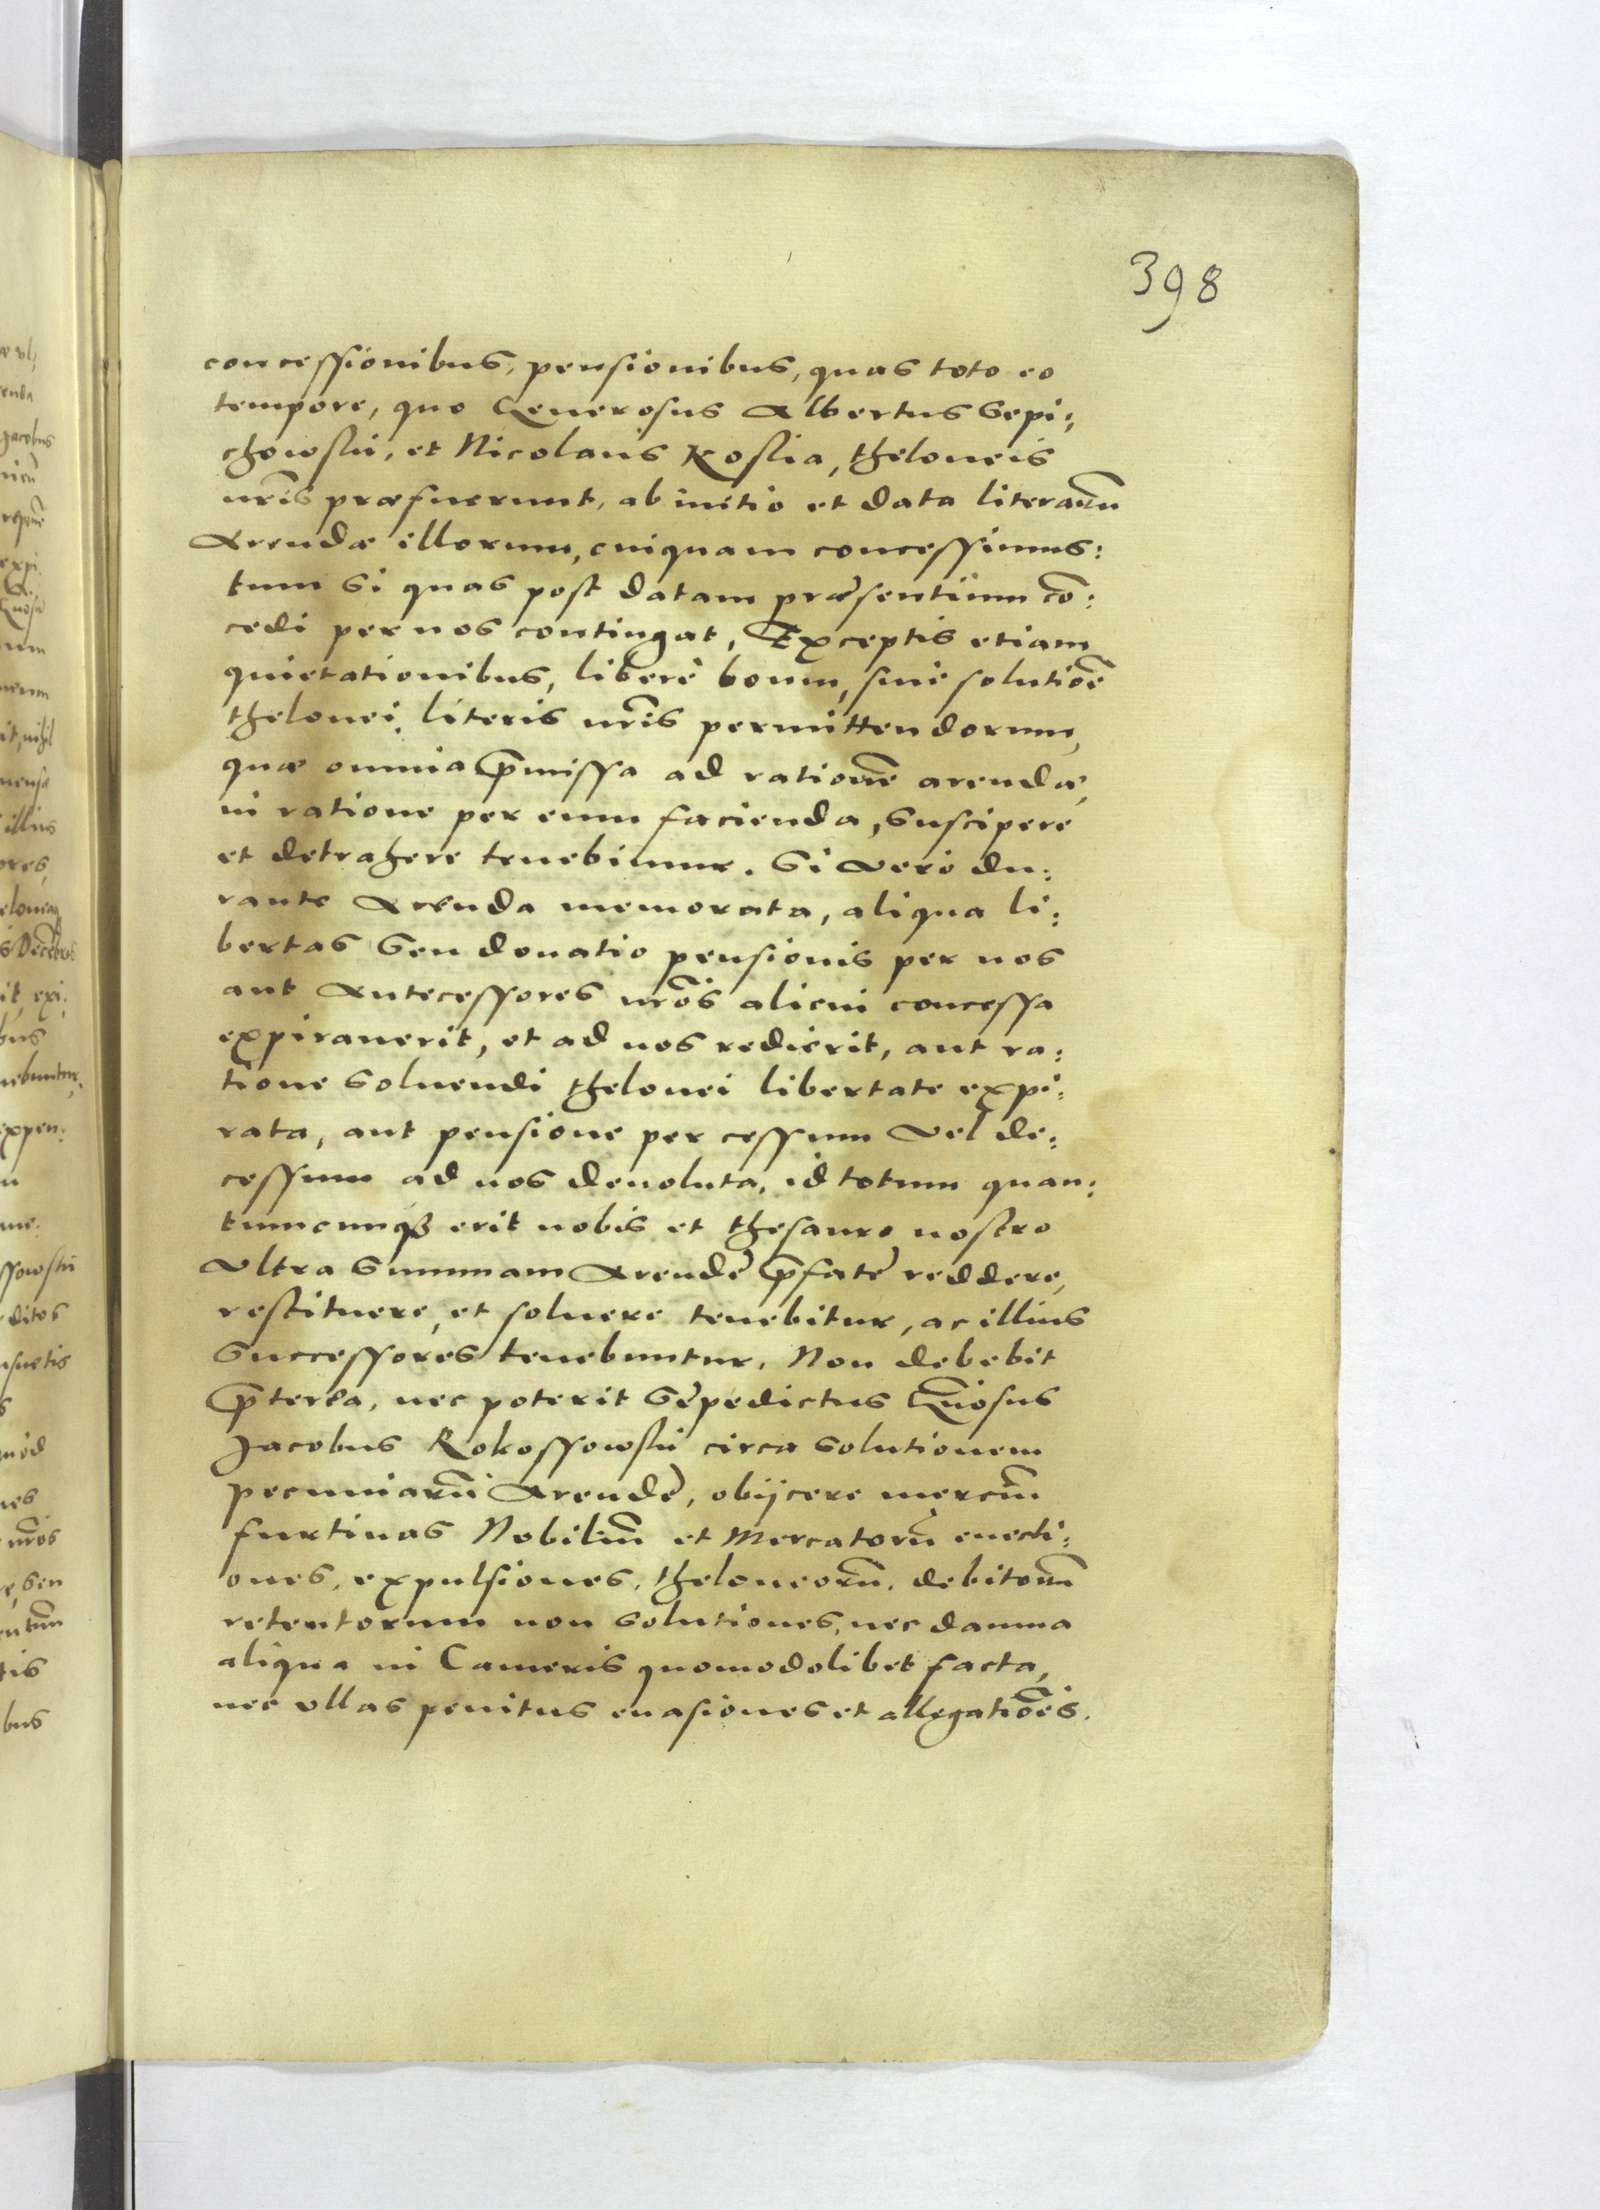 398
concessionibus, pensionibus, quas toto eo
tempore, quo Generosus Albertus Sepi:
chowski, et Nicolaus Koslia, theloneis
nr̃is præfuerunt, ab initio et data literarũ
Arendæ illorum, cuiquam concessimus:
tum si quas post datam præsentium cõ:
cedi per nos contingat, Exceptis etiam
quietationibus, liberè boum, sinè solutiõe
thelonei, literis nr̃is permittendorum,
quæ omnia p̃missa ad rationẽ arendæ,
in ratione per eum facienda, suscipere
et detrahere tenebimur. Si vero du:
rante Arenda memorata, aliqua li:
bertas seu donatio pensionis per nos
aut Antecessores nr̃os alicui concessa
expirauerit, et ad nos redierit, aut ra:
tione soluendi thelonei libertate expi:
rata, aut pensione per cessum vel de:
cessum ad nos deuoluta, id totum quan:
tumcunqȝ erit nobis et thesauro nostro
vltra summam Arendę p̃fatę reddere,
restituere, et soluere tenebitur, ac illius
Successores tenebuntur. Non debebit
p̃terea, nec poterit sępedictus Gñosus
Jacobus Rokossowski circa solutionem
pecuniarũ Arendę, obijcere merciũ
furtiuas Nobiliũ et Mercatorũ euecti:
ones, expulsiones, theloneorũ, debitorũ
retentorum non solutiones, nec damna
aliqua in Cameris quomodolibet facta,
nec vllas penitus euasiones et allegatiões.